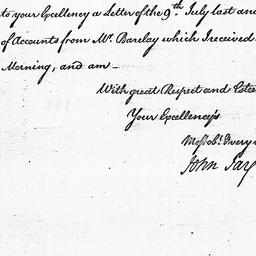 to your Excellency a Letter of the 9th July last and
of Accounts from Mr. Barclay which I received
Morning, and am —
With great Respect and Estee
Your Excellency's
Most obt. & very
John Jay